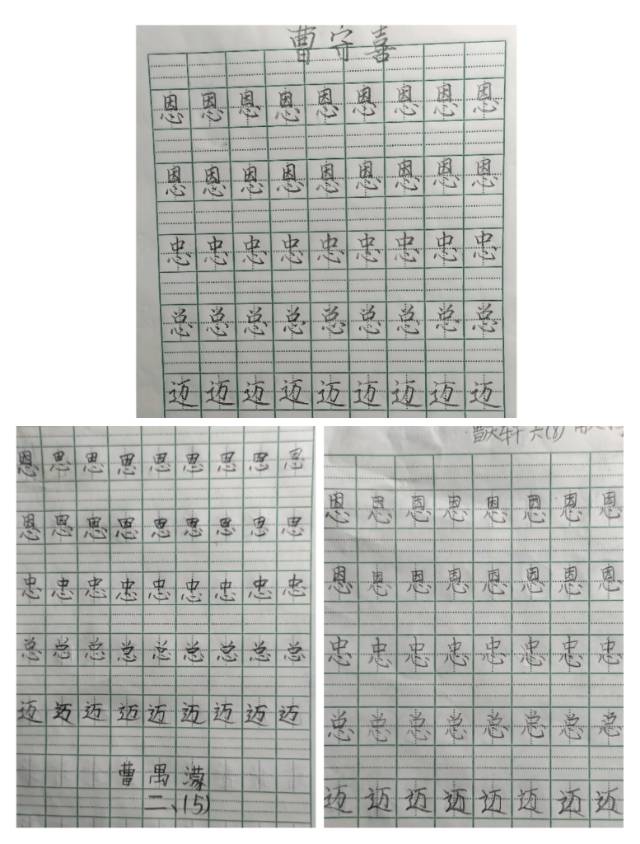 曹守喜
恩恩恩恩恩恩恩恩恩
恩恩恩恩恩恩恩恩恩
忠忠忠忠忠忠忠忠忠
总总总总总总总总总
迈迈迈迈迈迈迈迈迈
恩思思思思思思思思
恩思思思思思思思思
忠忠忠忠忠忠忠忠忠
总总总总总总总总总
迈迈迈迈迈迈迈迈迈
曹禺濛
二、(5)
六(8)
恩恩恩恩恩恩恩恩
恩恩恩恩恩恩恩恩
忠忠忠忠忠忠忠忠
总总总总总总总总
迈迈迈迈迈迈迈迈